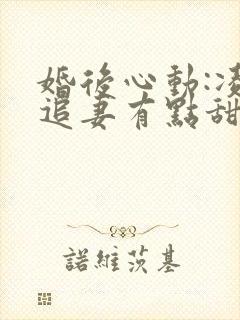 婚後心動:凌
追妻有點甜
諾維茨基